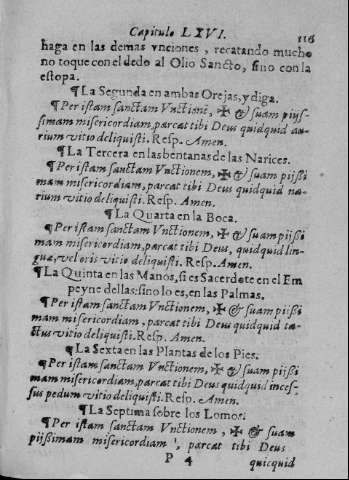 Capitulo LXVI. 116
haga en las demas vnciones, recatando mucho
no toque con el dedo al Olio Sancto, sino con la
estopa.
¶La Segunda en ambas Orejas, y diga.
¶Per istam sanctam Vnctionē, ✠ & suam pijs-
simam misericordiam, parcat tibi Deus quidquid au-
rium vitio deliquisti. Resp. Amen.
¶La Tercera en las bentanas de las Narices.
¶Per istam sanctam Vnctionem, ✠ & suam pijssi
mam misericordiam, parcat tibi Deus quidquid na-
rium vitio deliquisti. Resp. Amen.
¶La Quarta en la Boca.
¶Per istam sanctam Vnctionem, ✠ & suam pijssi
mam misericordiam, parcat tibi Deus, quidquid lin-
guæ, vel oris vitio deliquisti. Resp. Amen.
¶La Quinta en las Manos, si es Sacerdote en el Em
peyne dellas: sino lo es, en las Palmas.
¶Per istam sanctam Vnctionem, ✠ & suam pijssi
mam misericordiam, parcat tibi Deus, quidquid ta-
ctus vitio deliquisti. Resp. Amen.
¶La Sexta en las Plantas de los Pies.
¶Per istam sanctam Vnctionem, ✠ & suam pijssi
mam misericordiam, parcat tibi Deus quidquid inces-
sus pedum vitio deliquisti. Resp. Amen.
¶La Septima sobre los Lomos.
¶Per istam sanctam Vnctionem, ✠ & suam
pijssimam misericordiam, parcat tibi Deus
P 4 quicquid